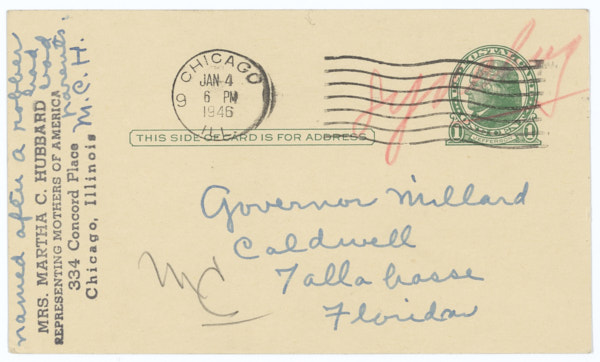 CHICAGO
JAN 4
6 PM
1946
ILL.
9
1 1
JEFFERSON
THIS SIDE OF CARD IS FOR ADDRESS
named after a robber
had bad
parents.
M.C.H.
MRS. MARTHA C. HUBBARD
REPRESENTING MOTHERS OF AMERICA
334 Concord Place
Chicago, Illinois
Governor Millard
Caldwell
Tallahasse
Florida
MC